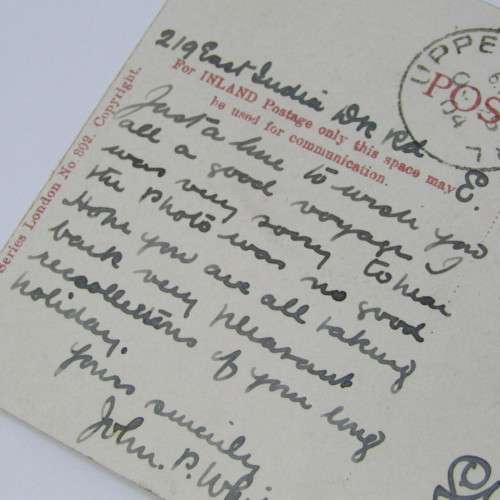 219 East India Dk Rd E.
For INLAND Postage only this space may
be used for communication.
Just a line to wish you
all a good voyage I
was very sorry to hear
the photo was no good
Hope you are all taking
back very pleasant
recollections of your long
holiday.
Yours sincerely
John. P.
Series London No 802. Copyright.
UPPE
POS
04